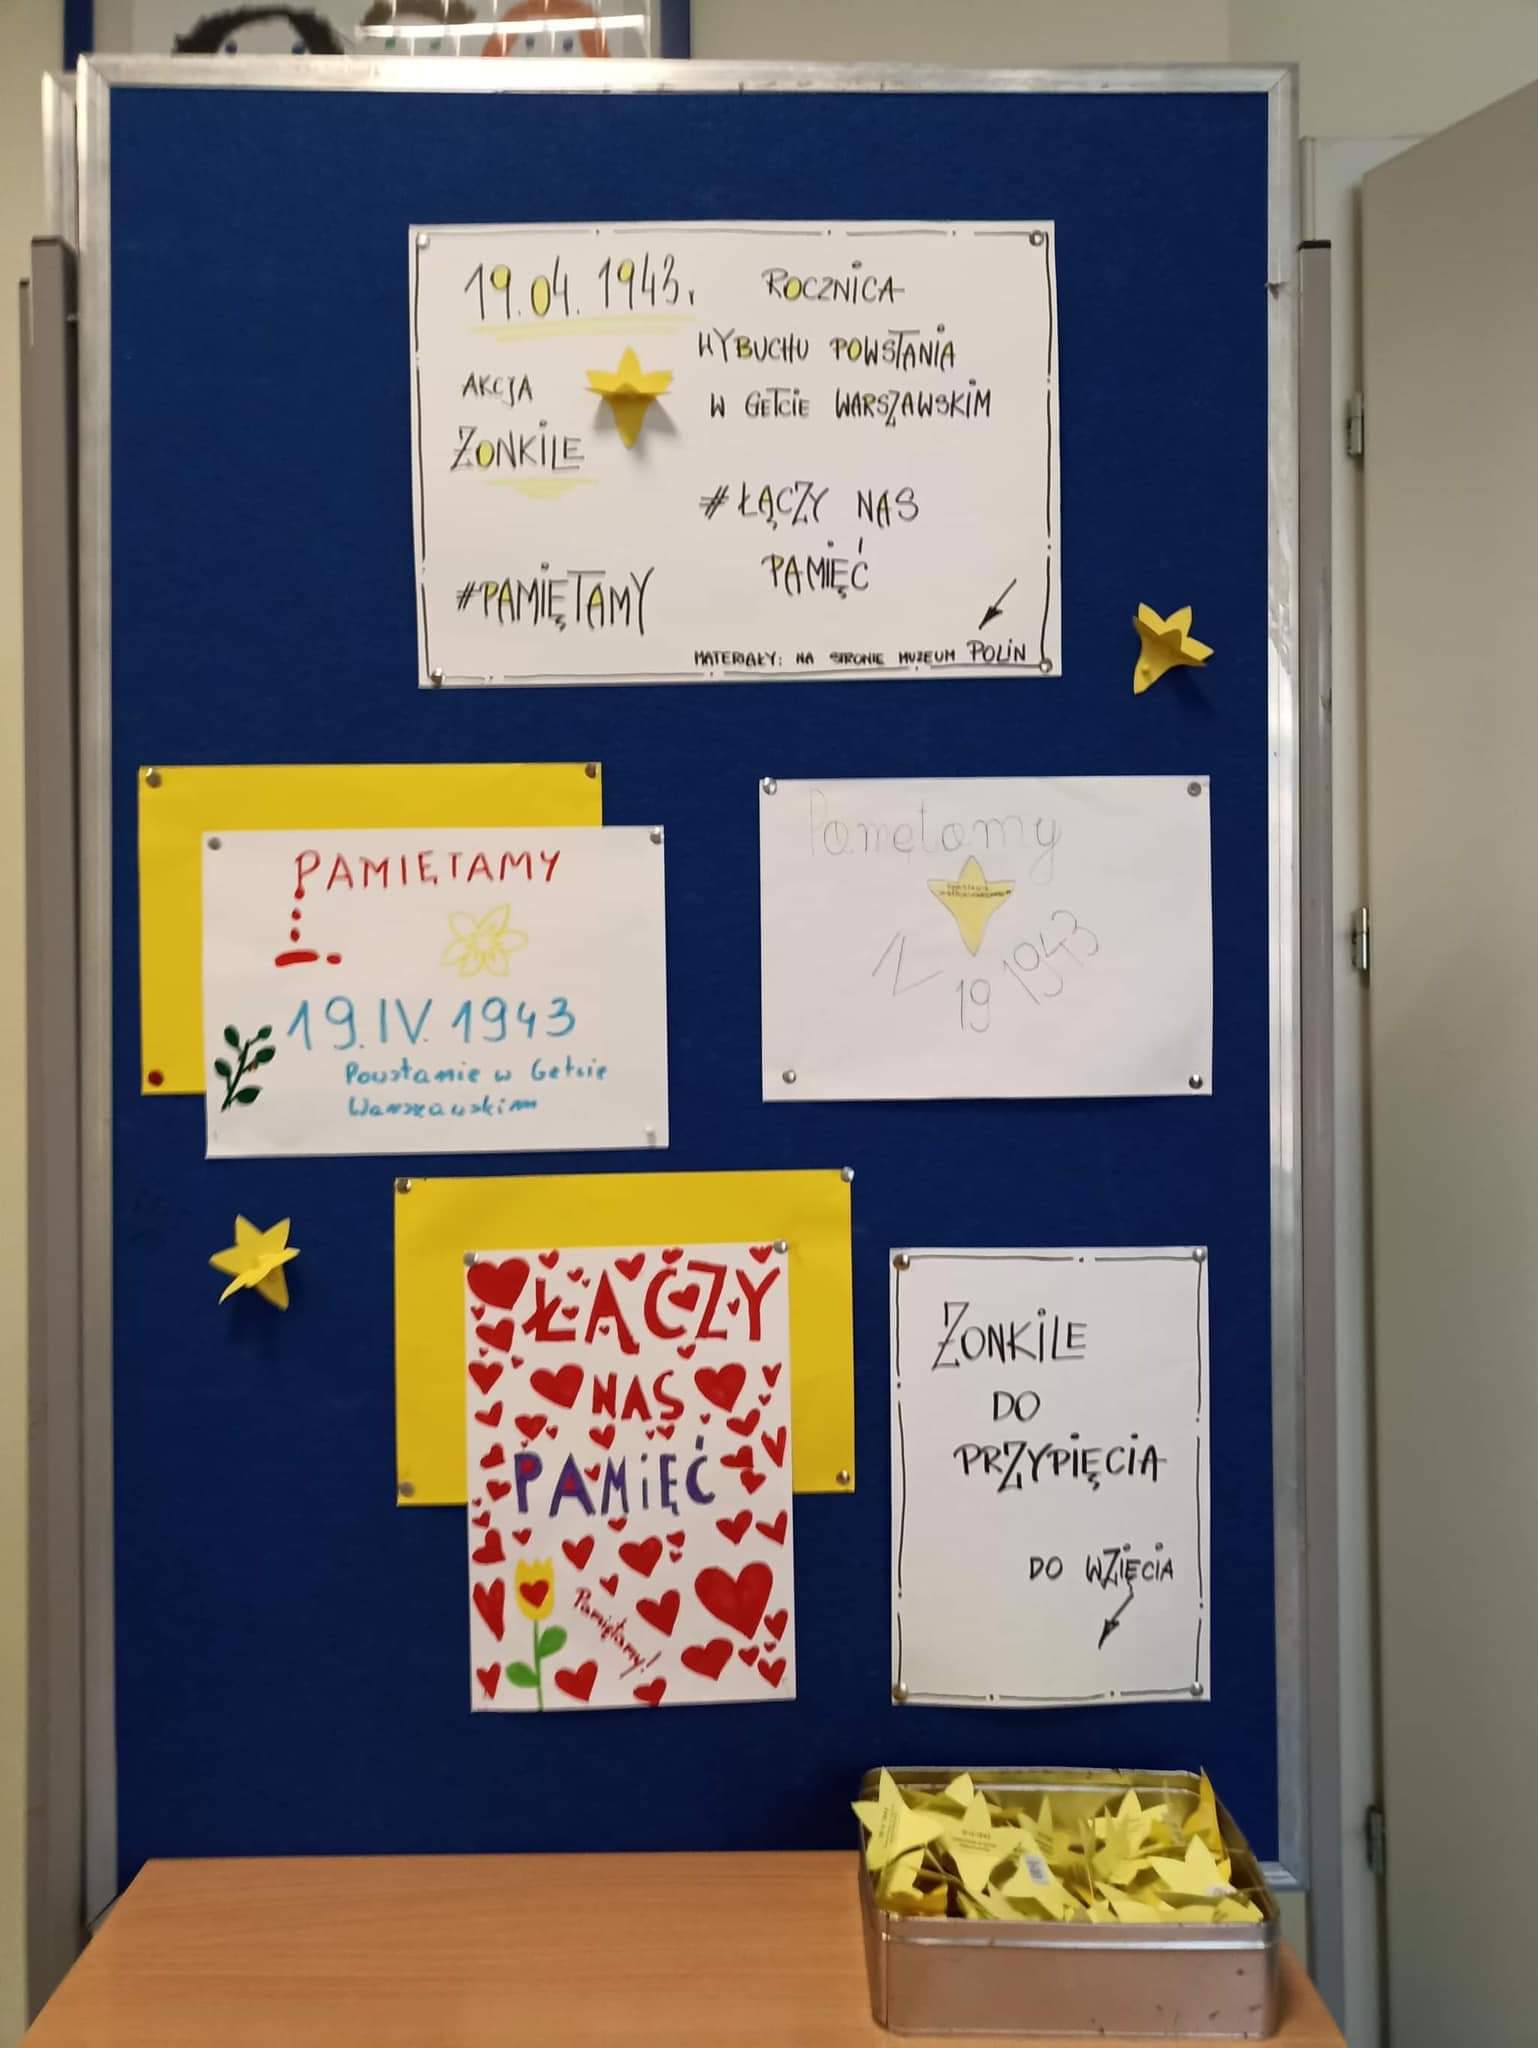 19.04.1943r.
AKCJA
ŻONKILE
#PAMIĘTAMY
ROCZNICA
WYBUCHU POWSTANIA
W GETCIE WARSZAWSKIM
#ŁĄCZY NAS
PAMIĘĆ
MATERIAŁY: NA STRONIE MUZEUM POLIN
PAMIĘTAMY
19.IV.1943
Powstanie w Getcie
Warszawskim
Pamętamy
19 1943
ŁĄCZY
NAS
PAMIĘĆ
Pamiętamy!
ŻONKILE
DO
PRZYPIĘCIA
DO WZIĘCIA